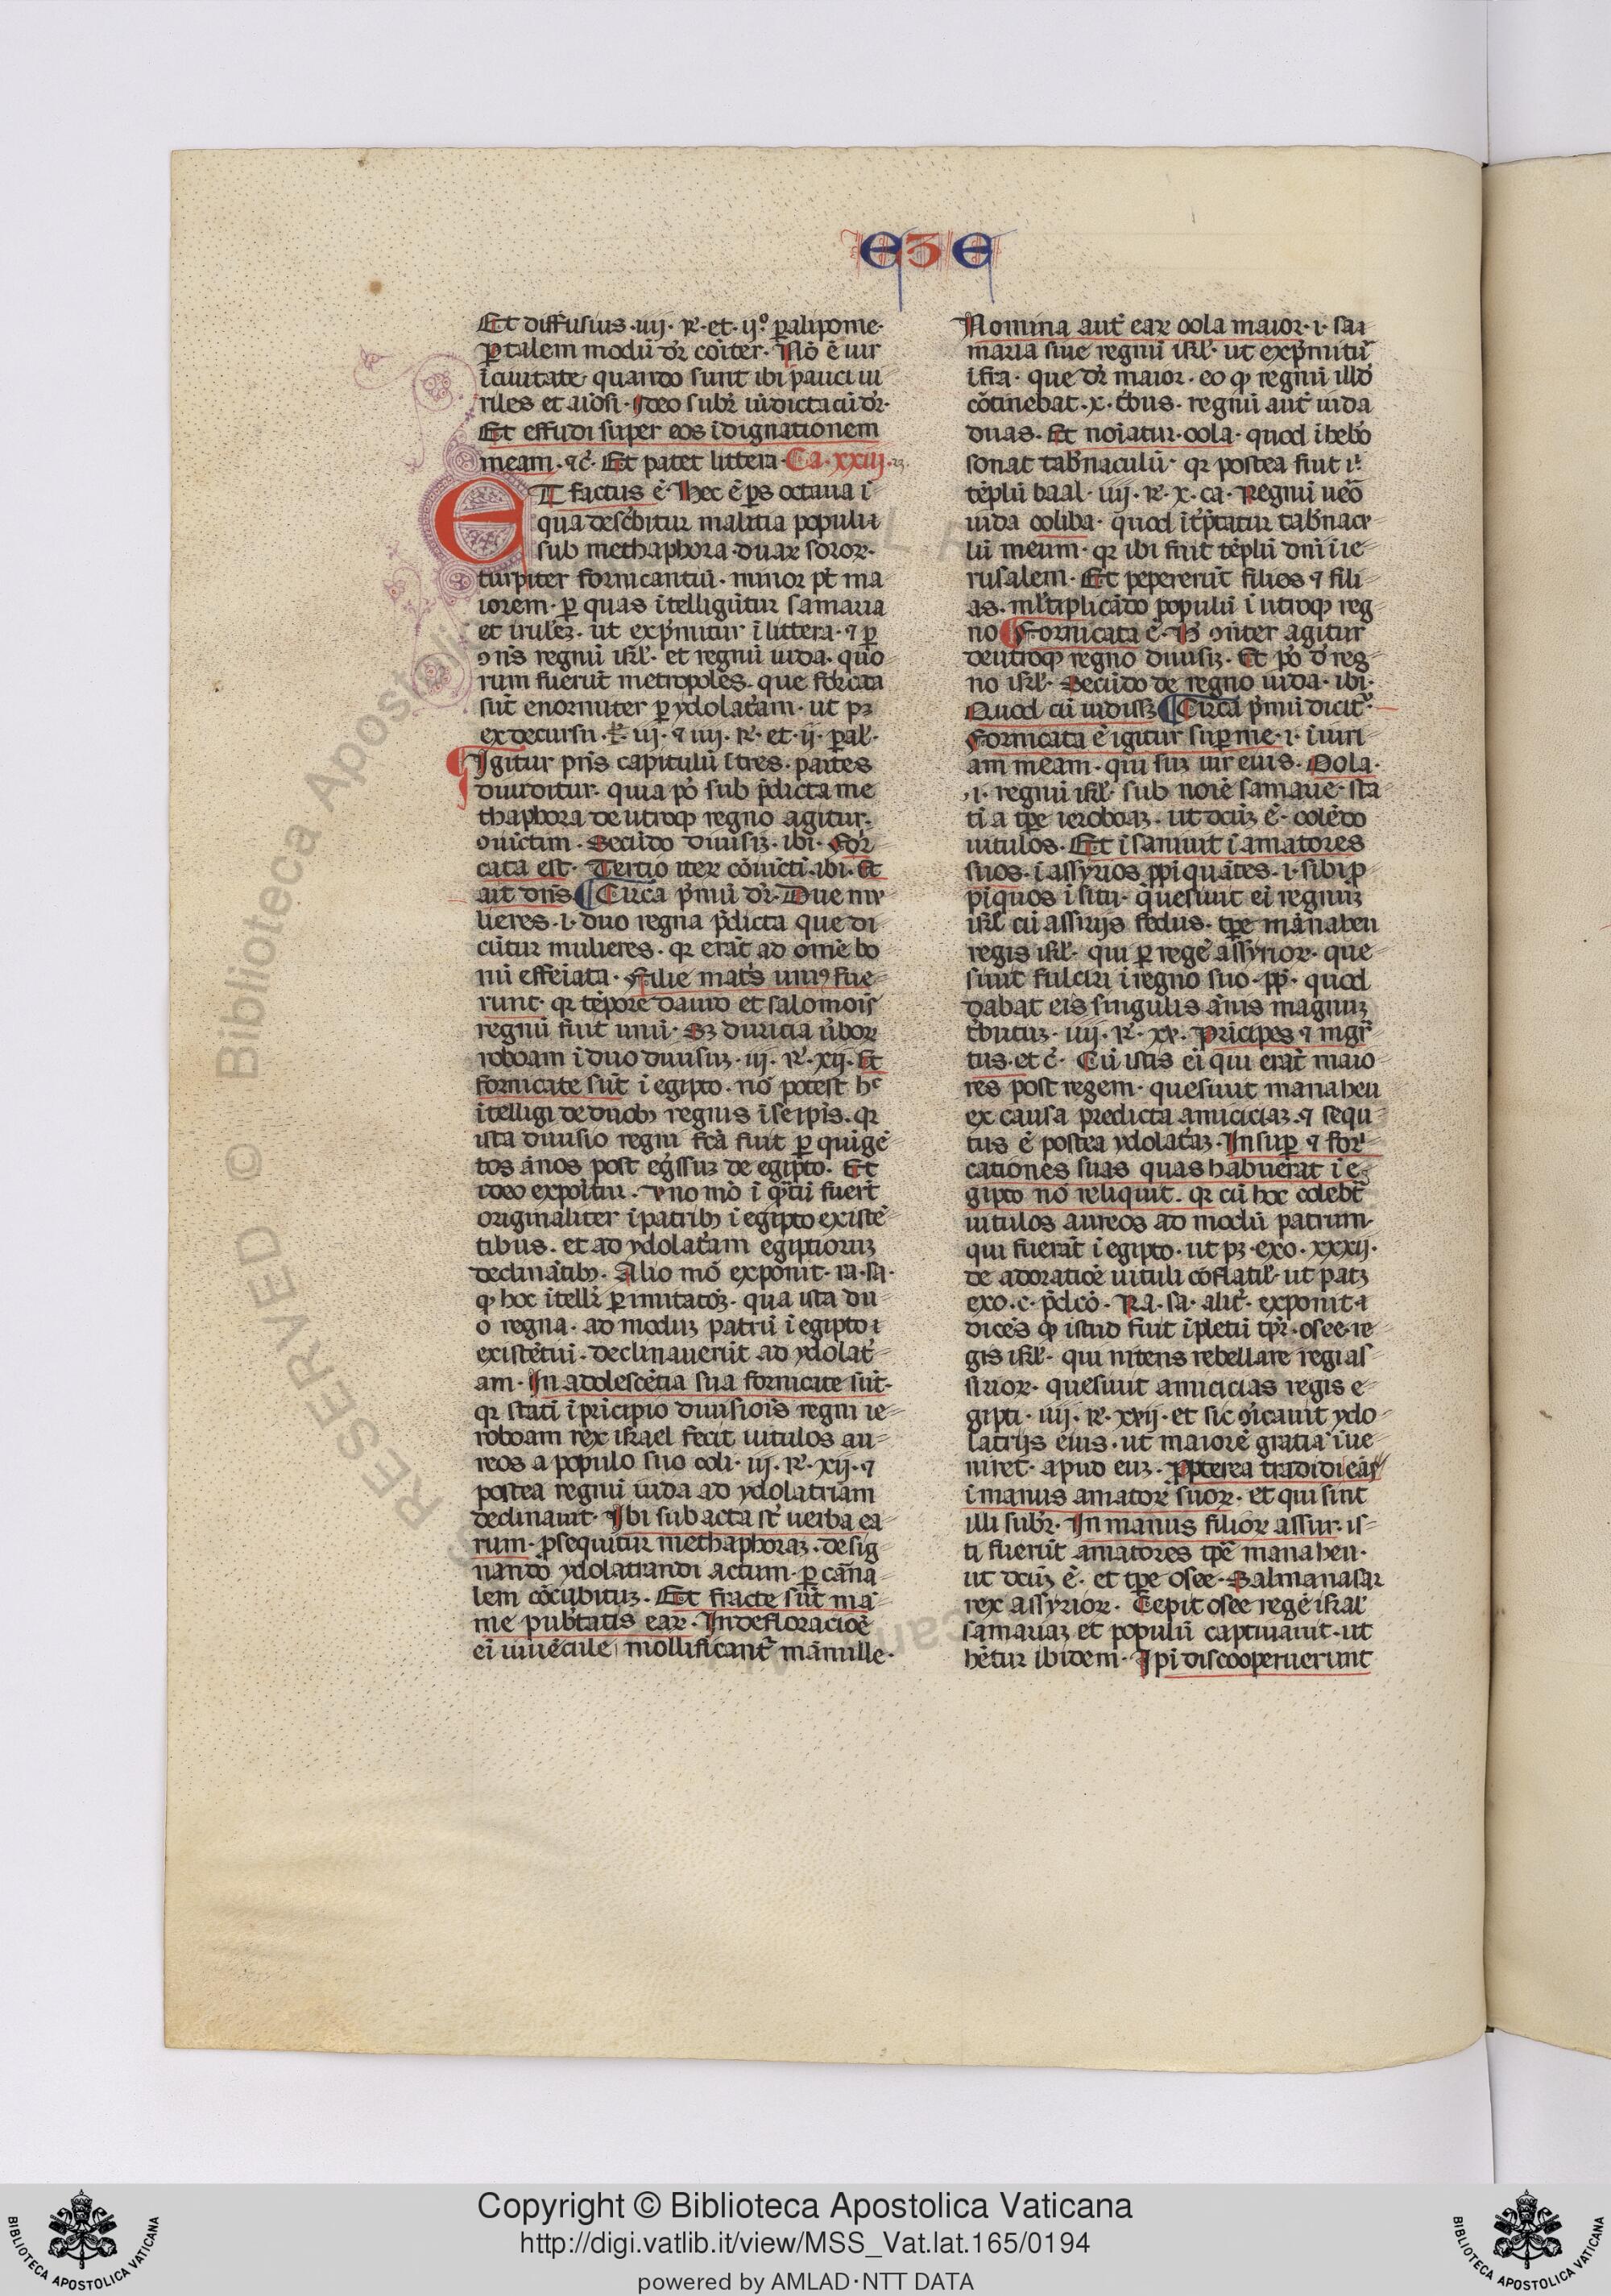 e3e
Et diffusius·iiij·R̃·et·ij°·ꝑalipome·
ꝑ talem modū dr̃ cōiter·Nō ē uir
ī ciuitate·quando sunt ibi pauci ui
riles et aīosi·Ideo subr̃
Et effudi super eos īdignationem
meam·⁊c̃·Et patet littera·Ca·xxiij·
ET factus ē·Hec ē ps octaua ī
qua desc̓bitur malitia populi
sub methaphora·duaꝝ soroꝝ·
turpiter fornicantiū·minor pꝰt ma
iorem·ꝑ quas ītelligūtur samaria
et irl̃eꝫ·ut exp̓mitur ī littera·⁊ ꝑ
ꝯn̄s regnū isrl̃·et regnū iuda·quo
rum fuerūt metropoles·que fōrcata
sūt enormiter ꝑ ydolat̓am·ut pꝫ
ex decursu·iij·⁊ iiij·R̃·et·ij·ꝑal̃·
Igitur pn̄s capitulū ī tres·partes
diuiditur·quia pͦ sub p̄dicta me
thaphora de utroqꝫ regno agitur·
ꝯiūctim·Secūdo diuisiꝫ·ibi·For
cata est·Tertio iteꝝ cōiūctī·ibi·Et
ait dn̄s ¶Circa p̓mū dr̃·Due mu
lieres·i·duo regna p̄dicta que di
cūtur mulieres·qꝛ erāt ad om̄e bo
nū effeīata·Filie mat̓s uniꝰ fue
runt·qꝛ tēpore dauid et salomōis
regnū fuit unū·Sꝫ duricia ūboꝝ
roboam ī duo diuisuꝫ·iij·R̃·xij·Et
fornicate sūt ī egipto·nō potest hᶜ
ītelligi de duobꝫ regnis ī seip̄is·qꝛ
ista diuisio regni fc̄a fuit ꝑ quīgē
tos ānos post eg̓ssuꝫ de egipto·Et
ideo expoītur·Vno mō ī q̄tū fuerūt
originaliter ī patribꝫ ī egipto existē
tibus·et ad ydolat̓am egiptioruꝫ
declināntibꝫ·Alio mō exponit·ra·sa·
qꝫ hoc ītelli ꝑ imitatōꝫ·qua ista du
o regna·ad moduꝫ patrū ī egipto
existētiū·declinauerūt ad ydolat̓
am·In adolescētia sua fornicate sūt·
qꝛ statī ī pricipio diuisiōis regni ie
roboam rex israel fecit uitulos au
reos a populo suo coli·iij·R̃·xij·⁊
postea regnū iuda ad ydolatriam
declinauit·Ibi subacta st̄ uerba ea
rum·ꝓsequitur methaphoraꝫ·desig
nando ydolatrandi actum·ꝑ carna
lem cōcubituꝫ·Et fracte sūt mā
me pub̓tatis eaꝝ·In defloracioē
ei iuuēcule mollificant̄ māmille·
Nomina aut̄ eaꝝ oola maior·i·sa
maria siue regnū isrl̃·ut exp̓mitur
īfra·que dr̃ maior·eo qꝫ regnū illd̓
cōtinebat·x·t̓bus·regnū aut̄ iuda
duas·Et noīatur·oola·quod ī heb̓o
sonat tab̓naculū·qꝛ postea fiut ī
tēplū baal·iiij·R̃·x·ca·Regnū ūeo
iuda ooliba·quod īt̓p̄tatur tab̓nacu
lū meum·qꝛ ibi fuit tēplū dn̄i ī ie
rusalem·Et pepererūt filios ⁊ fili
as·ml̃tiplicādo populū ī utroqꝫ reg
no ¶Fornicata ē·Hͨ ꝯn̄ter agitur
de utroqꝫ regno diuisiꝫ·Et pͦ d̓ reg
no isrl̃·Secūdo de regno iuda·ibi·
Quod cū uidissꝫ ¶Circa p̓mū dicit̄
Fornicata ē igitur suꝑ me·i·ī iuri
am meam·qui suꝫ uir eius·Oola·
·i·regnū isrl̃·sub noīe samarie·sta
tī a tp̄e ieroboaꝫ·ut dcūꝫ ē·colēdo
uitulos·Et īsaniuit ī amatores
suos·ī assyrios ꝓpīquātes·i·sibi ꝓ
pīquos ī situ·q̄ quesiuit ei regnuꝫ
isrl̃ cū assirijs fedus·tp̄e mānahen
regis isrl̃·qui ꝑ regē assyrioꝝ·que
siuit fulciri ī regno suo·ꝓp̄·quod
dabat eis singulis ānis magnuꝫ
t̓butuꝫ·iiij·R̃·xv·Pricipes ⁊ mgr̃
tus·et c̃·Cū istis ei qui erāt maio
res post regem·quesiuit manahen
ex causa predicta amiciciaꝫ·⁊ sequ
tus ē postea ydolat̓aꝫ·Insuꝑ ⁊ for
cationes suas quas habuerat ī e
gipto nō reliquit·qꝛ cū hoc coleb̄t
uitulos aureos ad modū patrum·
qui fuerāt ī egipto·ut pꝫ·exo·xxxij·
de adoratiōe uituli cōflatil̃·ut patꝫ
exo·c·p̄dc̄o·Ra·sa·alit̓·exponit
dicēs qꝫ istud fuit īpletū tp̄r·osee·re
gis isrl̃·qui nitens rebellare regi as
sirioꝝ·quesiuit amicicias regis e
gipti·iiij·R̃·xvij·et sic ꝯīcauit ydo
latrijs eius·ut maiorē gratiā īue
niret·apud euꝫ·Ꝓpterea tradidi eās
ī manus amatoꝝ suoꝝ·et qui sint
illi subr̃·In manus filioꝝ assur·is
ti fuerūt amatores tp̄e manahen·
ut dcūꝫ ē·et tp̄e osee·Salmanasar
rex assyrioꝝ·Cepit osee regē isral̃
samariaꝫ et populū captiuauit·ut
hētur ibidem·Ipi discooperuerunt
Copyright © Biblioteca Apostolica Vaticana
http://digi.vatlib.it/view/MSS_Vat.lat.165/0194
powered by AMLAD·NTT DATA
BIBLIOTECA APOSTOLICA VATICANA
BIBLIOTECA APOSTOLICA VATICANA